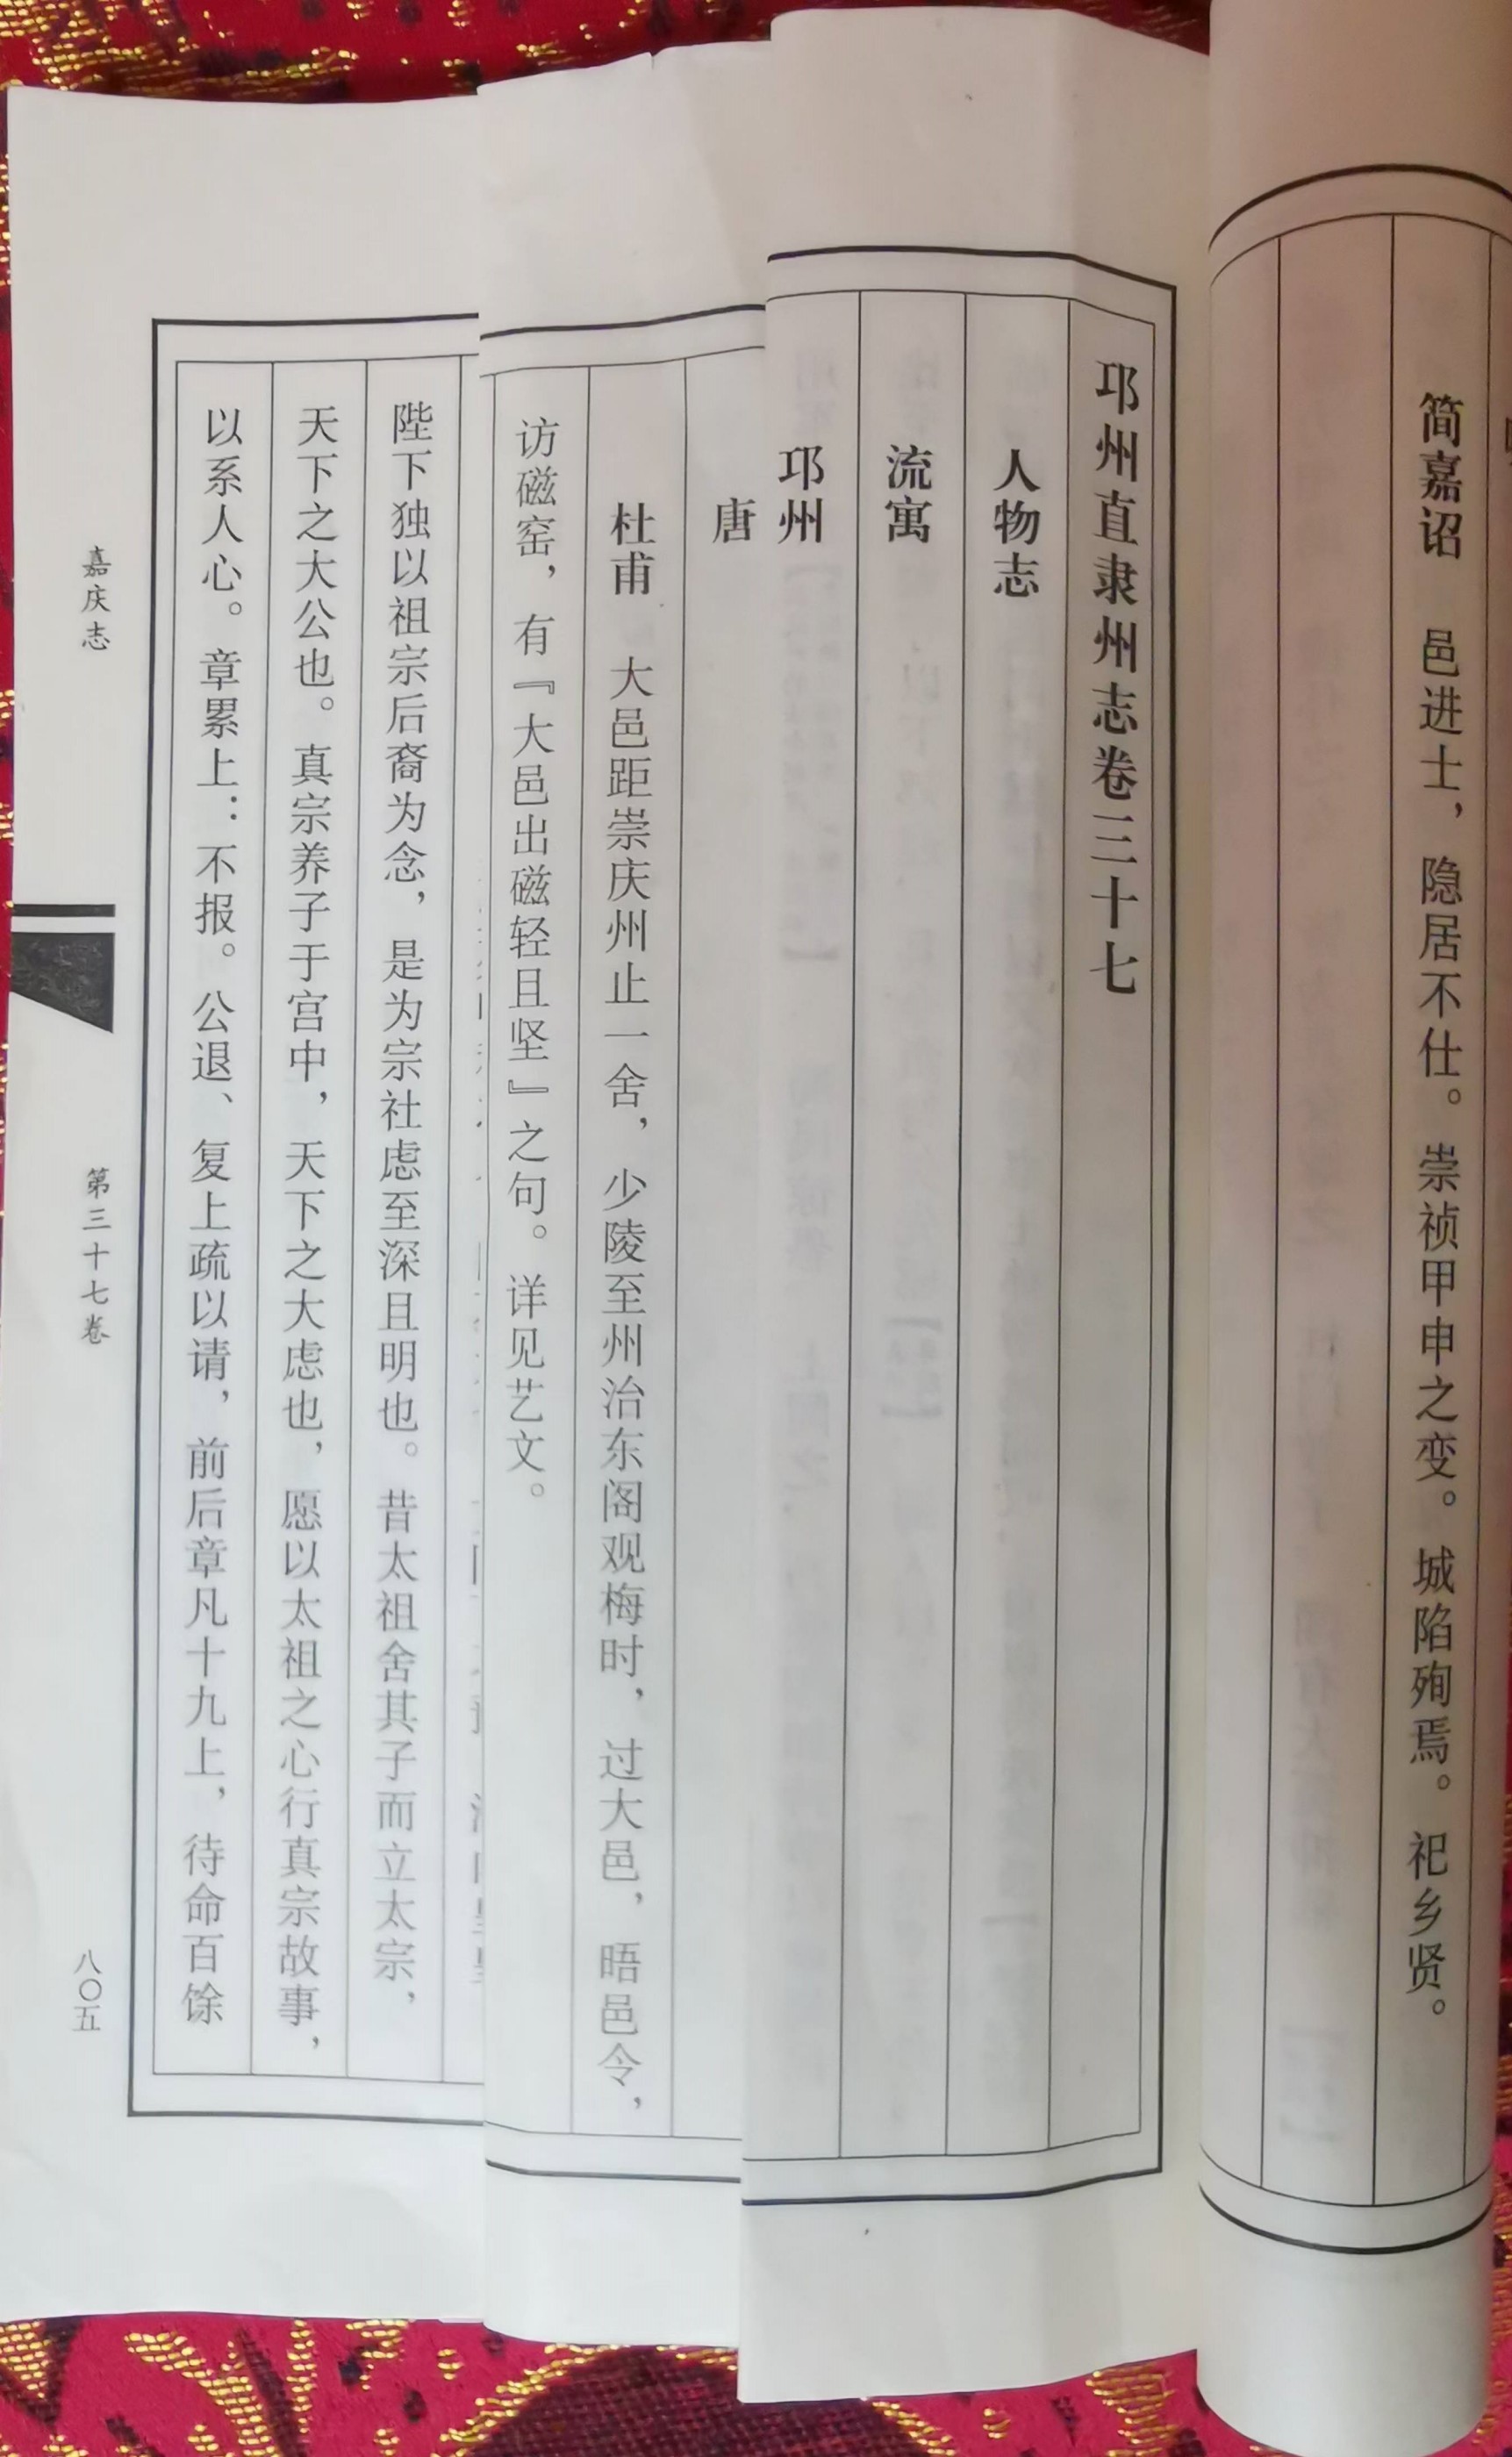 简嘉诏 邑进士，隐居不仕。崇祯甲申之变。城陷殉焉。祀乡贤。
邛州直隶州志卷三十七
人物志
流寓
邛州
唐
杜甫 大邑距崇庆州止一舍，少陵至州治东阁观梅时，过大邑，晤邑令，
访磁窑，有『大邑出磁轻且坚』之句。详见艺文。
陛下独以祖宗后裔为念，是为宗社虑至深且明也。昔太祖舍其子而立太宗，
天下之大公也。真宗养子于宫中，天下之大虑也，愿以太祖之心行真宗故事，
以系人心。章累上：不报。公退、复上疏以请，前后章凡十九上，待命百馀
嘉庆志
第三十七卷
八〇五